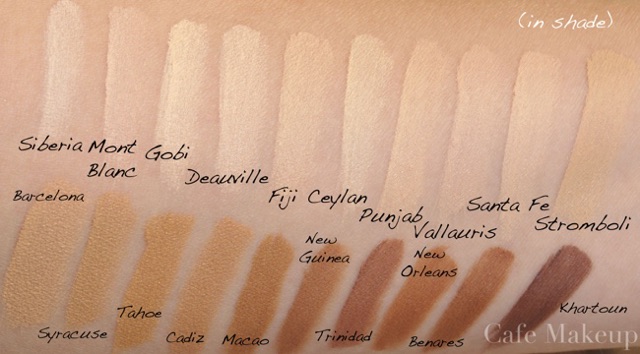 (in shade)
Siberia
Mont
Blanc
Gobi
Deauville
Fiji
Ceylan
Punjab
Vallauris
Santa Fe
Stromboli
Barcelona
Syracuse
Tahoe
Cadiz
Macao
New
Guinea
Trinidad
New
Orleans
Benares
Khartoun
Cafe Makeup